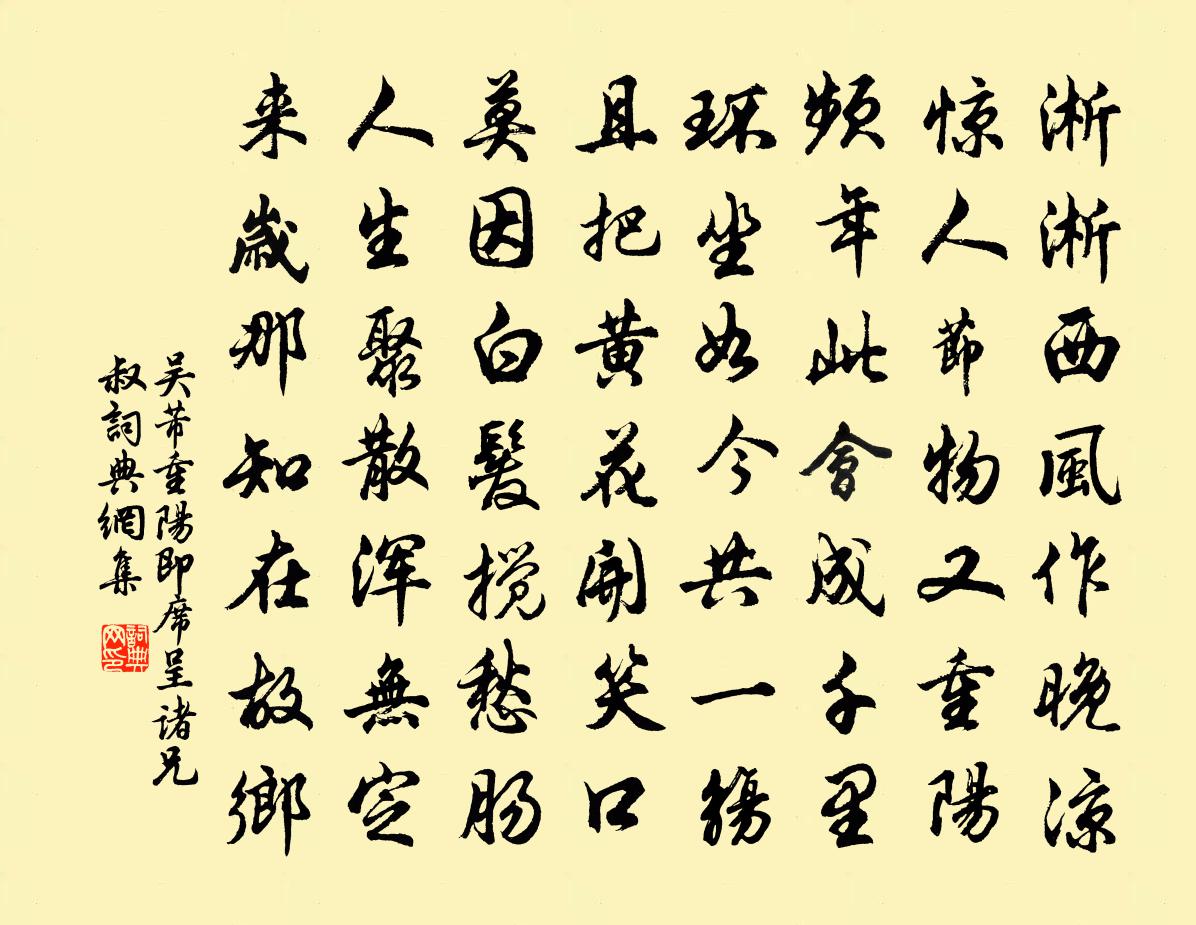 淅淅西風作晚凉
惊人節物又重陽
頻年此會成千里
環坐如今共一觴
且把黄花開笑口
莫因白髮攪愁腸
人生聚散浑無定
来歲那知在故鄉
吴芾重陽即席呈诸兄
叔詞典網集
詞典网印